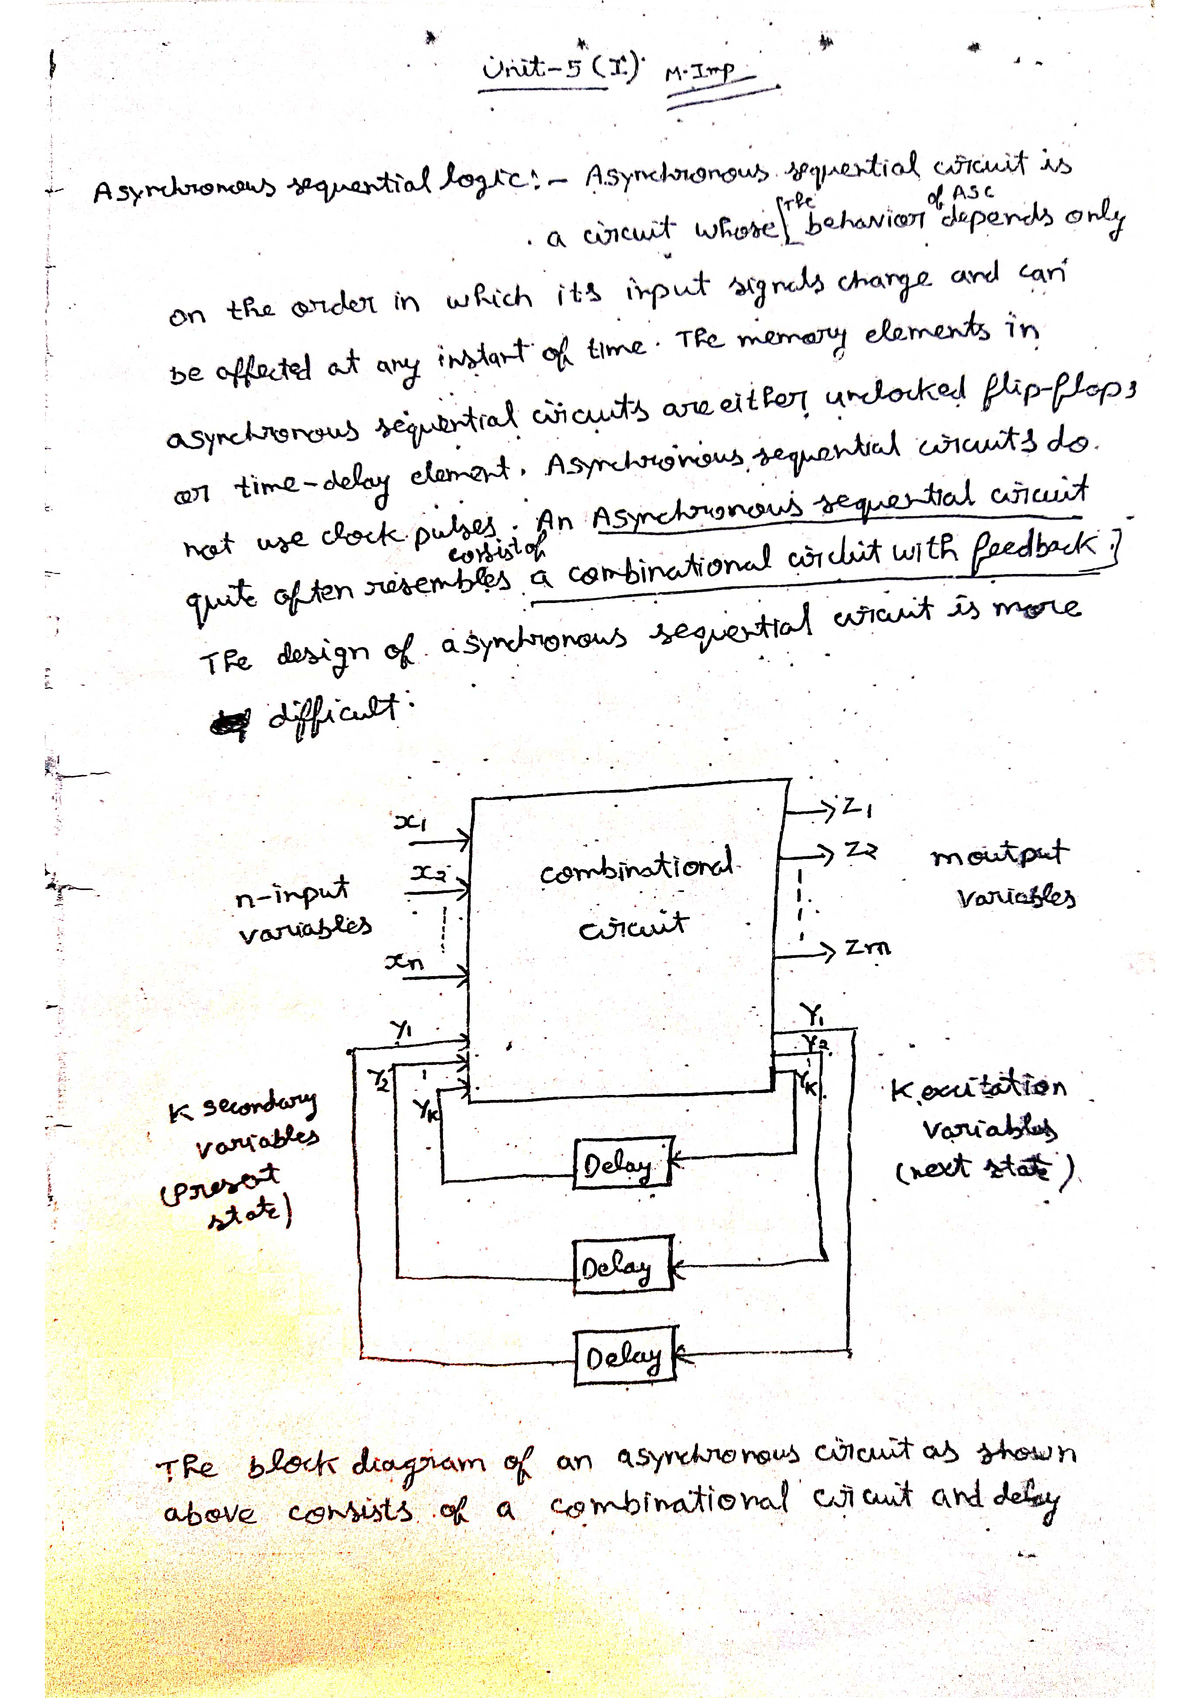 Unit-5 (I) M.Imp
Asynchronous sequential logic:- Asynchronous sequential circuit is
a circuit whose [The behavior of ASC depends only
on the order in which its input signals change and can
be affected at any instant of time. The memory elements in
asynchronous sequential circuits are either unclocked flip-flops
or time-delay element. Asynchronous sequential circuits do
not use clock pulses. An Asynchronous sequential circuit
consist of
quite often resembles a combinational circuit with feedback.]
The design of asynchronous sequential circuit is more
difficult:
x1
x2
xn
n-input
variables
combinational
circuit
Z1
Z2
Zm
m output
variables
Y1
Y2
YK
K secondary
variables
(Present
state)
Y1
Y2
YK
K excitation
variables
(next state)
Delay
Delay
Delay
The block diagram of an asynchronous circuit as shown
above consists of a combinational circuit and delay